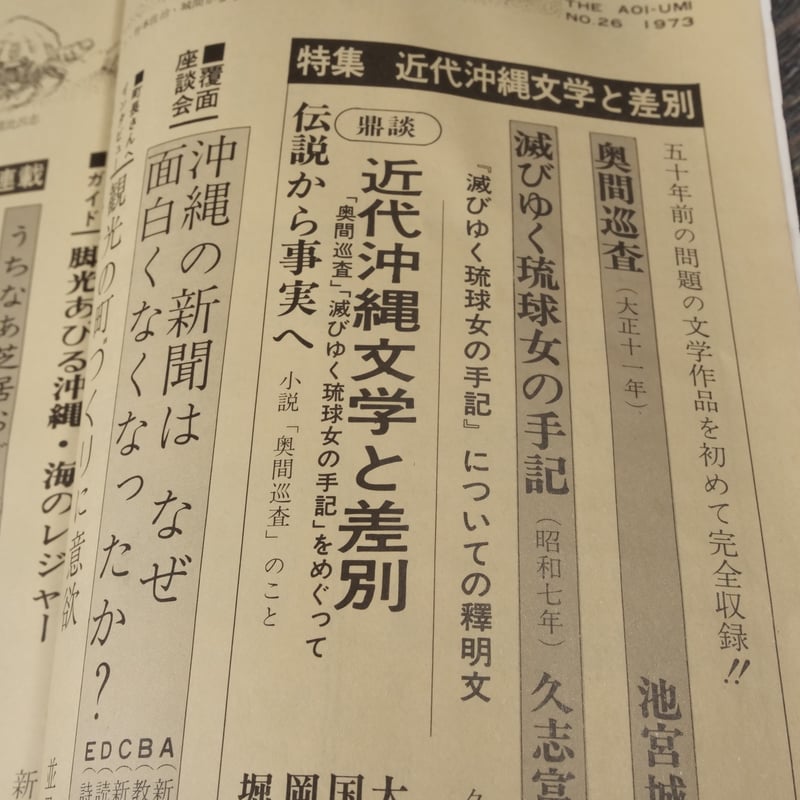 THE AOI-UMI
NO.26 1973
特集 近代沖縄文学と差別
五十年前の問題の文学作品を初めて完全収録!!
奥間巡査(大正十一年) 池宮城
滅びゆく琉球女の手記(昭和七年) 久志富
『滅びゆく琉球女の手記』についての釋明文
鼎談
近代沖縄文学と差別
「奥間巡査」「滅びゆく琉球女の手記」をめぐって
大
国
岡
堀
伝説から事実へ 小説「奥間巡査」のこと
■覆面
座談会
沖縄の新聞は なぜ
面白くなくなったか?
A
B
C
D
E
観光の町づくりに意欲
■ガイド 脚光あびる沖縄・海のレジャー
連載
うちなあ芝居